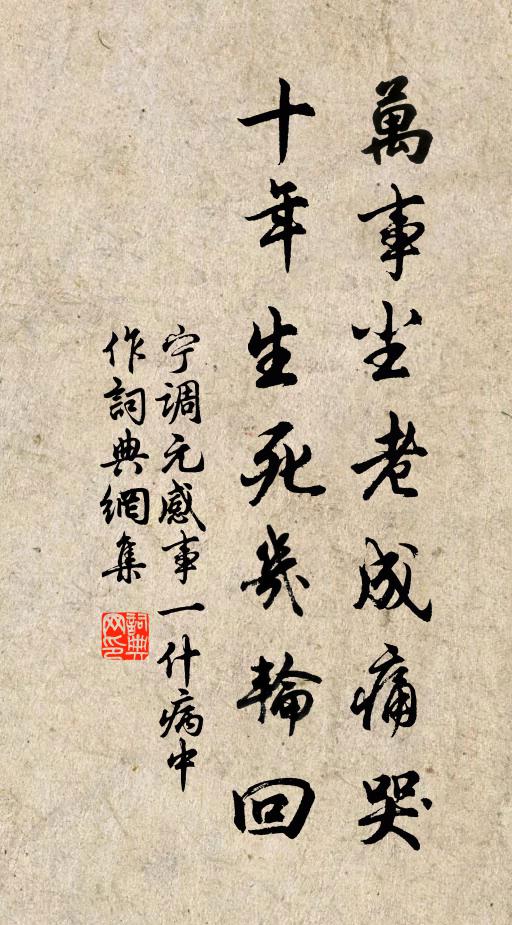 萬事尘老成痛哭
十年生死幾輪回
宁调元感事一什病中
作詞典網集
詞典
网印